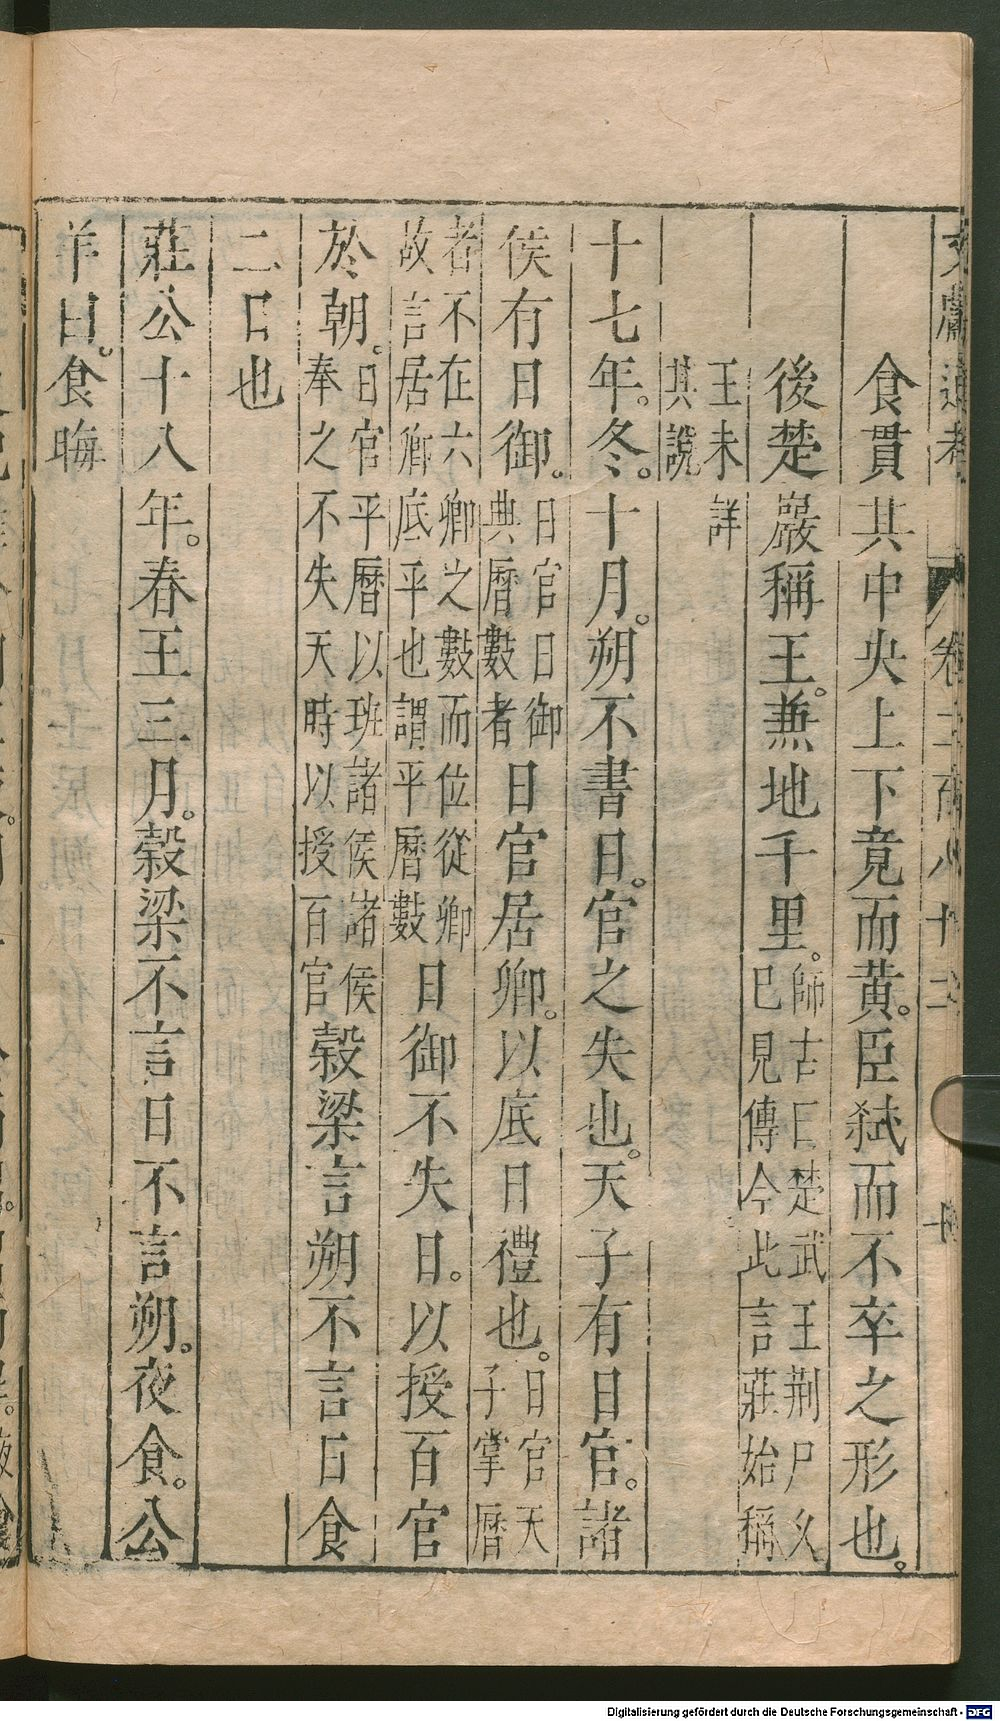 文獻通考 卷二百八十二
食貫其中央上下竟而黃。臣弑而不卒之形也。
後楚嚴稱王。兼地千里。師古曰楚武王荆尸久
已見傳今此言莊始稱
王未詳
其說
十七年。冬。十月。朔不書日。官之失也。天子有日官。諸
侯有日御。日官日御
典曆數者
日官居卿。以底日禮也。日官天
子掌曆
者不在六卿之數而位從卿
故言居卿底平也謂平曆數
日御不失日。以授百官
於朝。日官平曆以班諸侯諸侯
奉之不失天時以授百官
穀梁言朔不言日食
二日也
莊公十八年。春王三月。穀梁不言日不言朔。夜食。公
羊曰。食晦
Digitalisierung gefördert durch die Deutsche Forschungsgemeinschaft - DFG